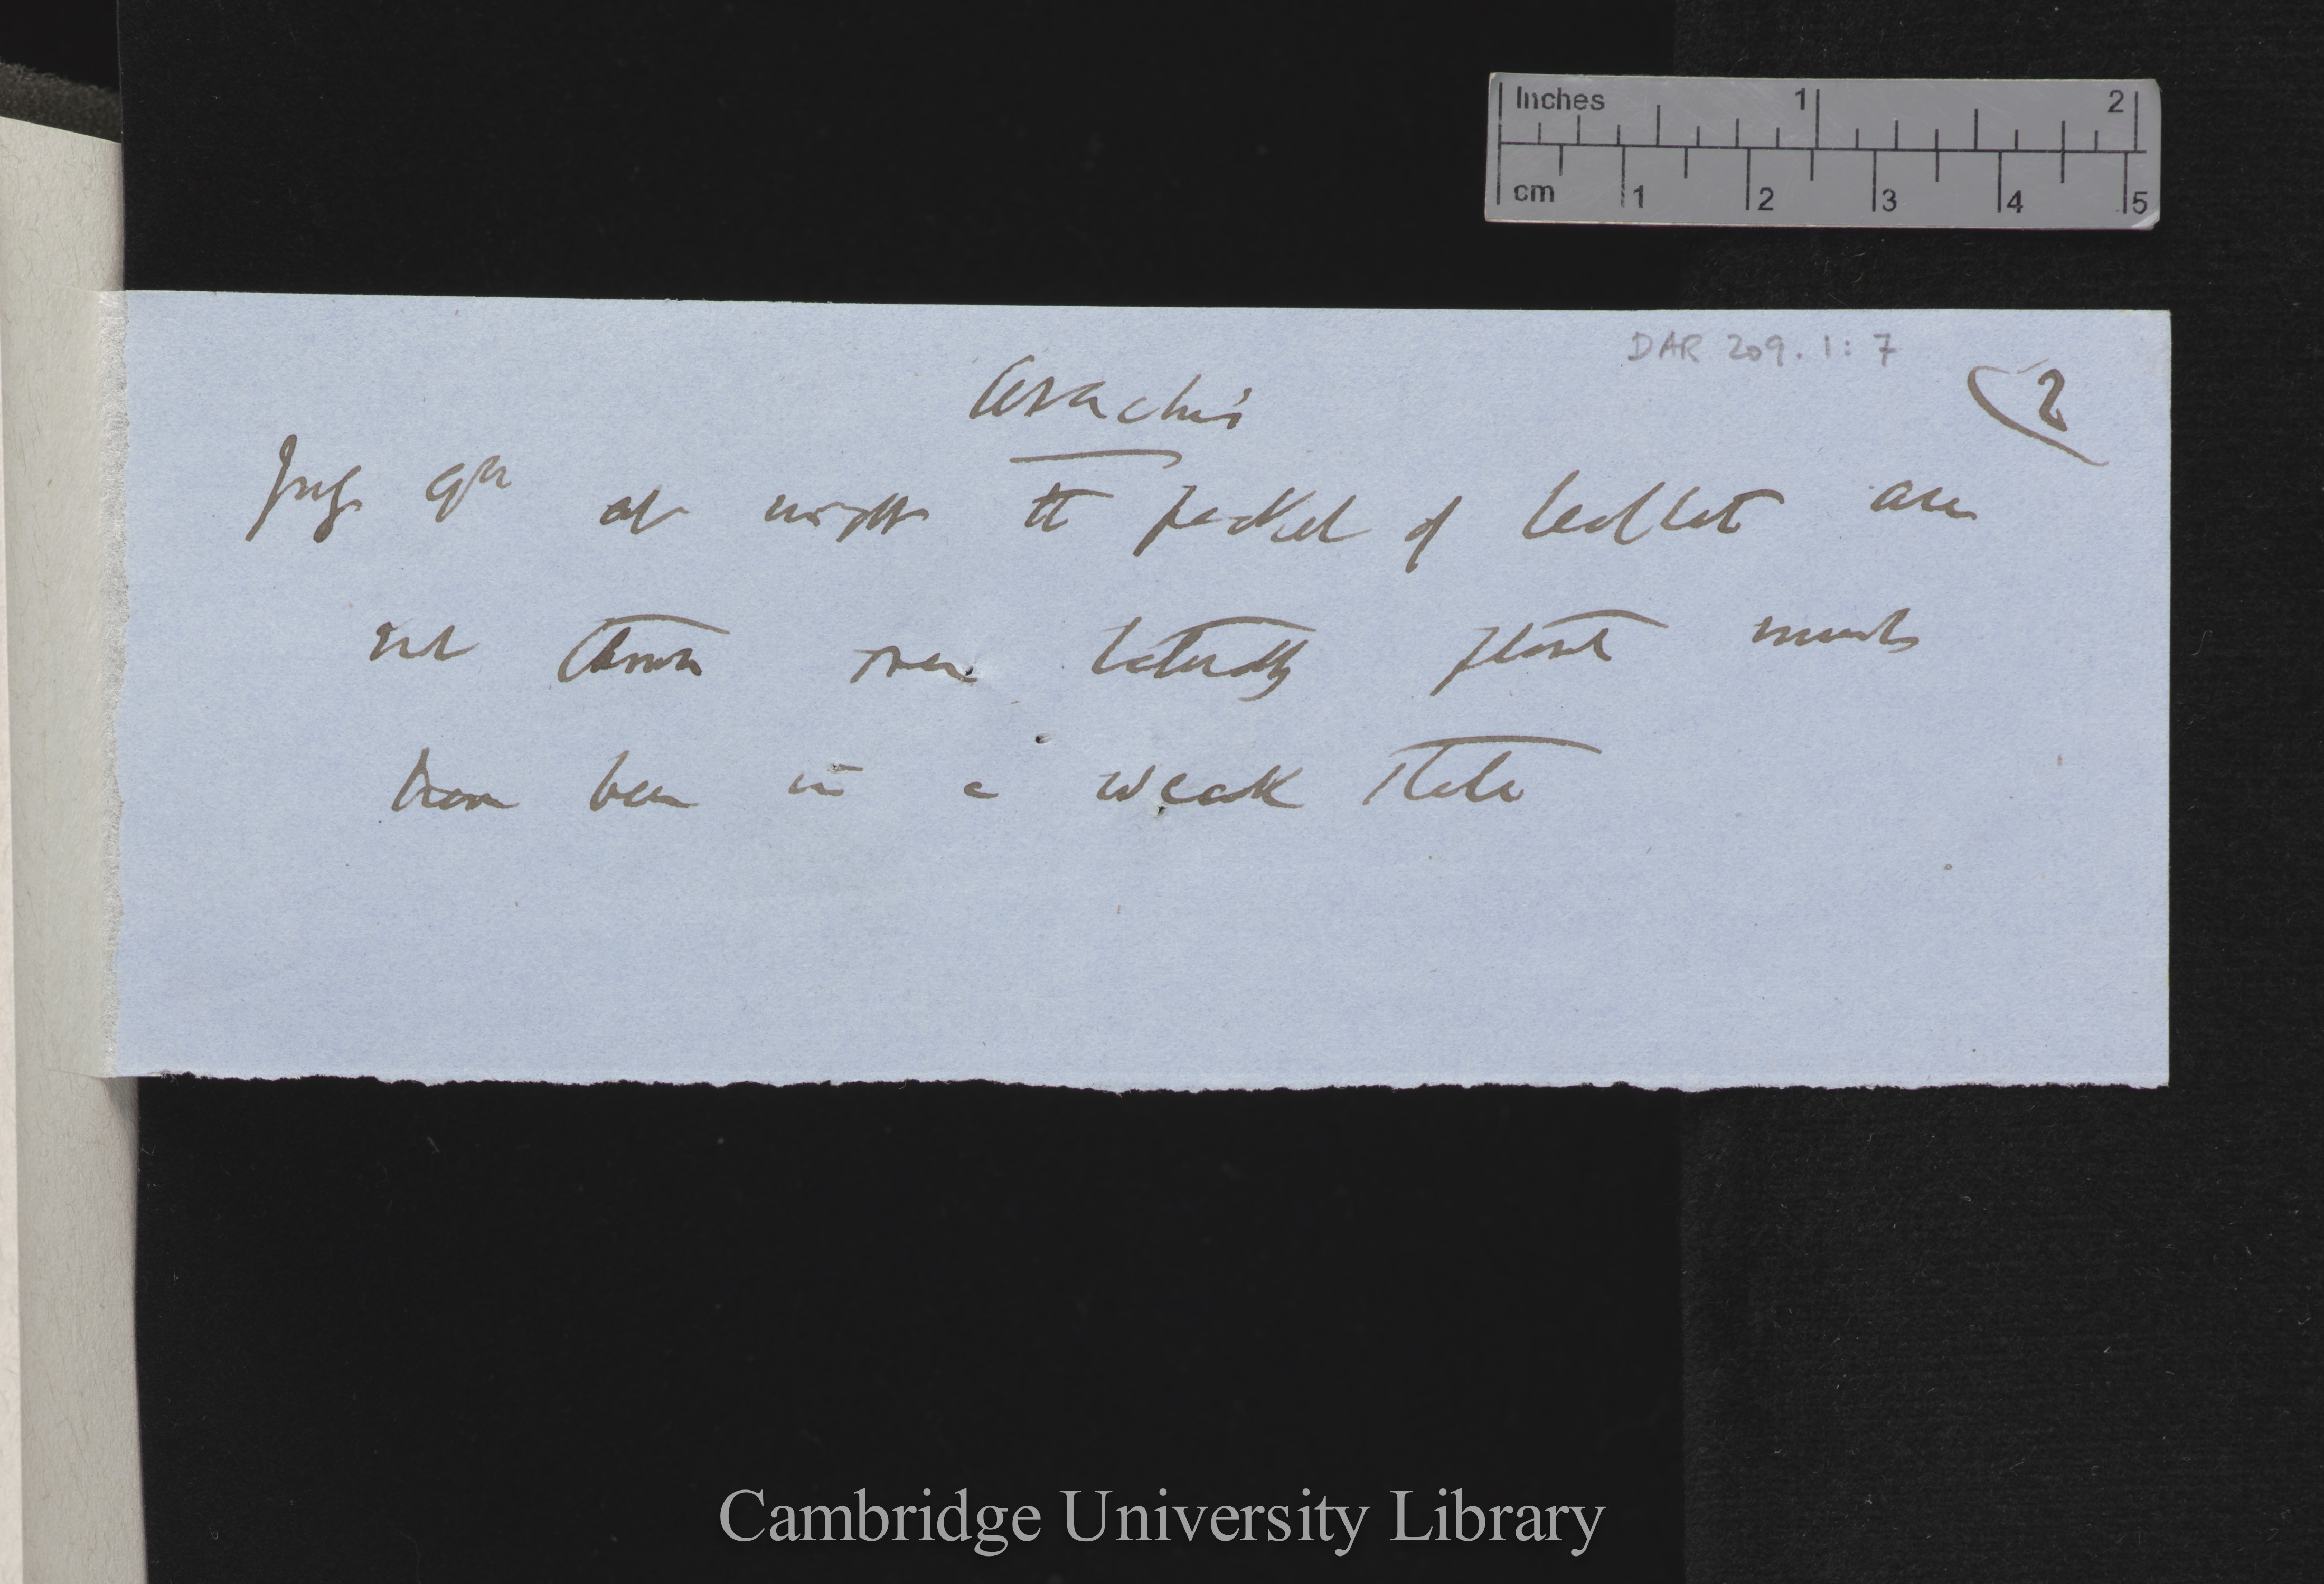 Inches 1 2
cm 1 2 3 4 5
DAR 209.1:7
(2
Arachis
July 9th at night the packet of leaflets are
not thrown over laterally plant must
have been in a weak state
Cambridge University Library